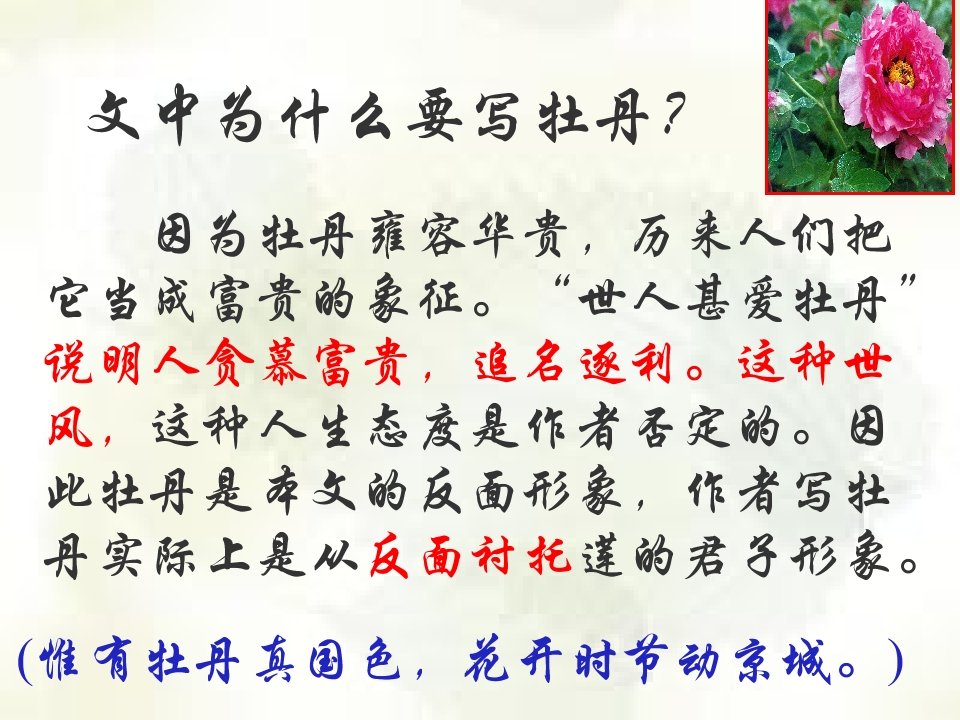 文中为什么要写牡丹？
因为牡丹雍容华贵，历来人们把
它当成富贵的象征。“世人甚爱牡丹”
说明人贪慕富贵，追名逐利。这种世
风，这种人生态度是作者否定的。因
此牡丹是本文的反面形象，作者写牡
丹实际上是从反面衬托莲的君子形象。
(惟有牡丹真国色，花开时节动京城。)